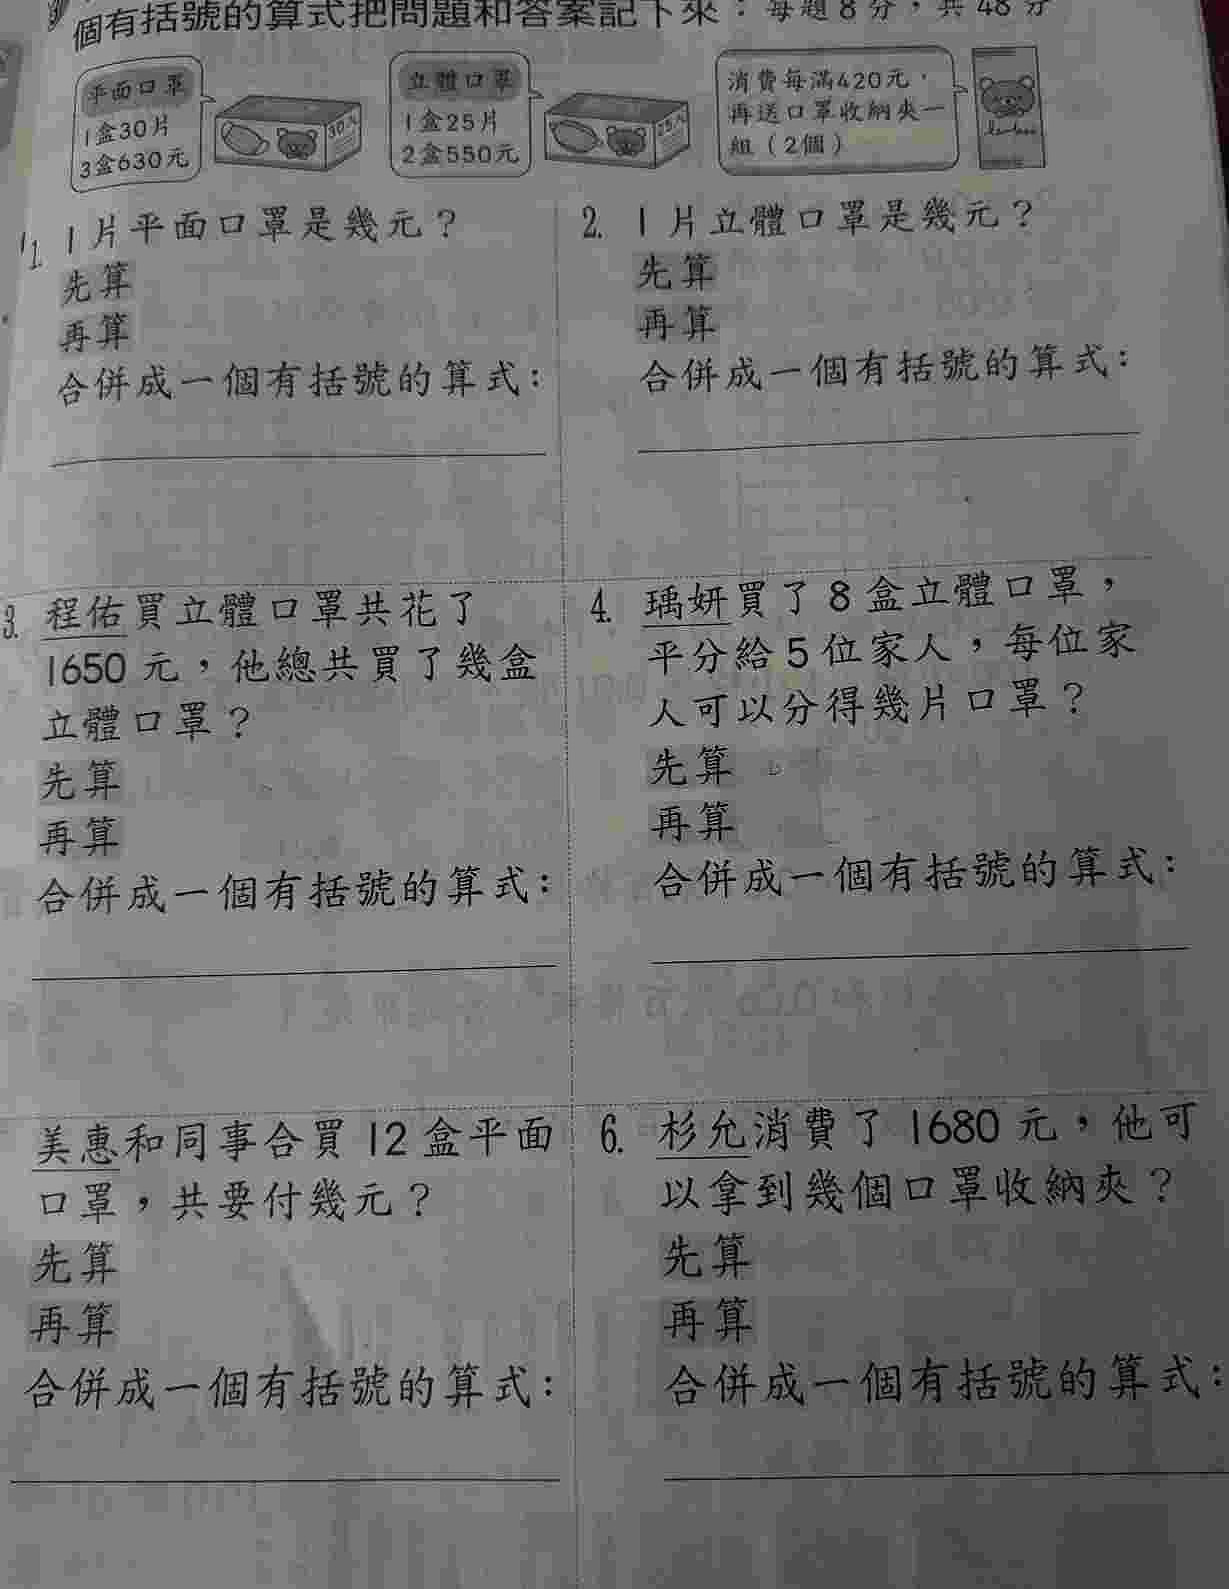 個有括號的算式把問題和答案記下來：每題8分，共48分
平面口罩
1盒30片
3盒630元
立體口罩
1盒25片
2盒550元
消費每滿420元，
再送口罩收納夾一
組（2個）
1. 1片平面口罩是幾元？
先算
再算
合併成一個有括號的算式：
2. 1片立體口罩是幾元？
先算
再算
合併成一個有括號的算式：
3. 程佑買立體口罩共花了
1650元，他總共買了幾盒
立體口罩？
先算
再算
合併成一個有括號的算式：
4. 瑀妍買了8盒立體口罩，
平分給5位家人，每位家
人可以分得幾片口罩？
先算
再算
合併成一個有括號的算式：
美惠和同事合買12盒平面
口罩，共要付幾元？
先算
再算
合併成一個有括號的算式：
6. 杉允消費了1680元，他可
以拿到幾個口罩收納夾？
先算
再算
合併成一個有括號的算式：